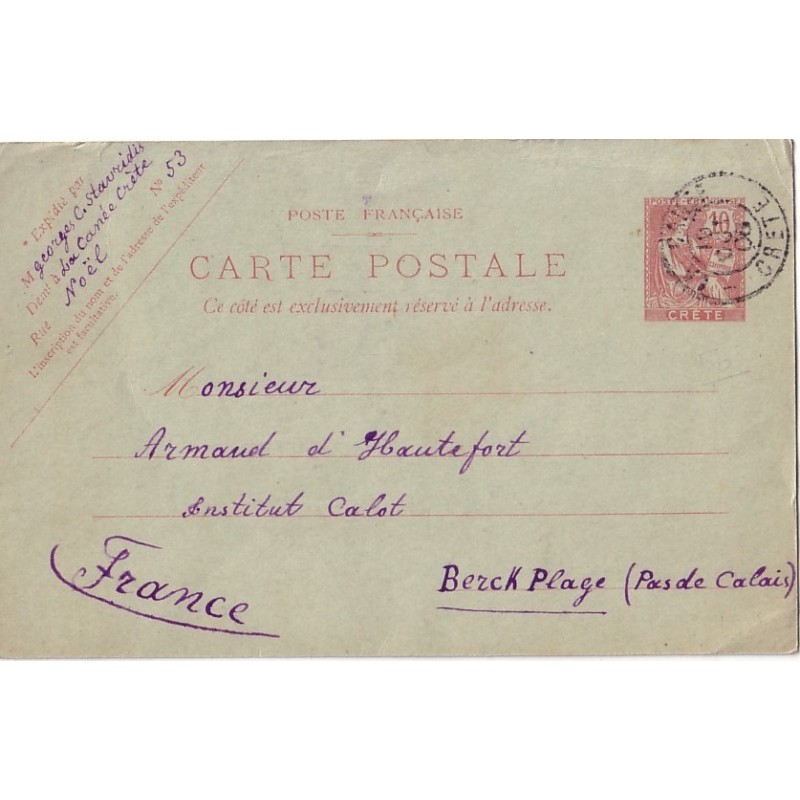 * Expédié par
M georges C. Stavridis
Deint à La Canée Crète
Rue Noël No 53
L'inscription du nom et de l'adresse de l'expéditeur
est facultative.
POSTE FRANÇAISE
CARTE POSTALE
Ce côté est exclusivement réservé à l'adresse.
POSTE FRANÇAISE
10
CRÈTE
CRETE
Monsieur
Armand d'Hautefort
Institut Calot
Berck Plage (Pas de Calais)
France